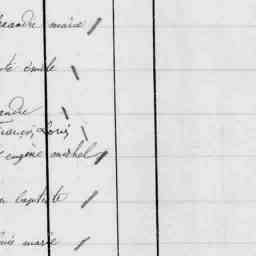 exandre marie
émile
andre
François Louis
eugène michel
baptiste
marie